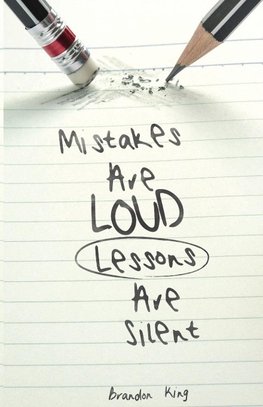 Mistakes
Are
LOUD
Lessons
Are
Silent
Brandon King